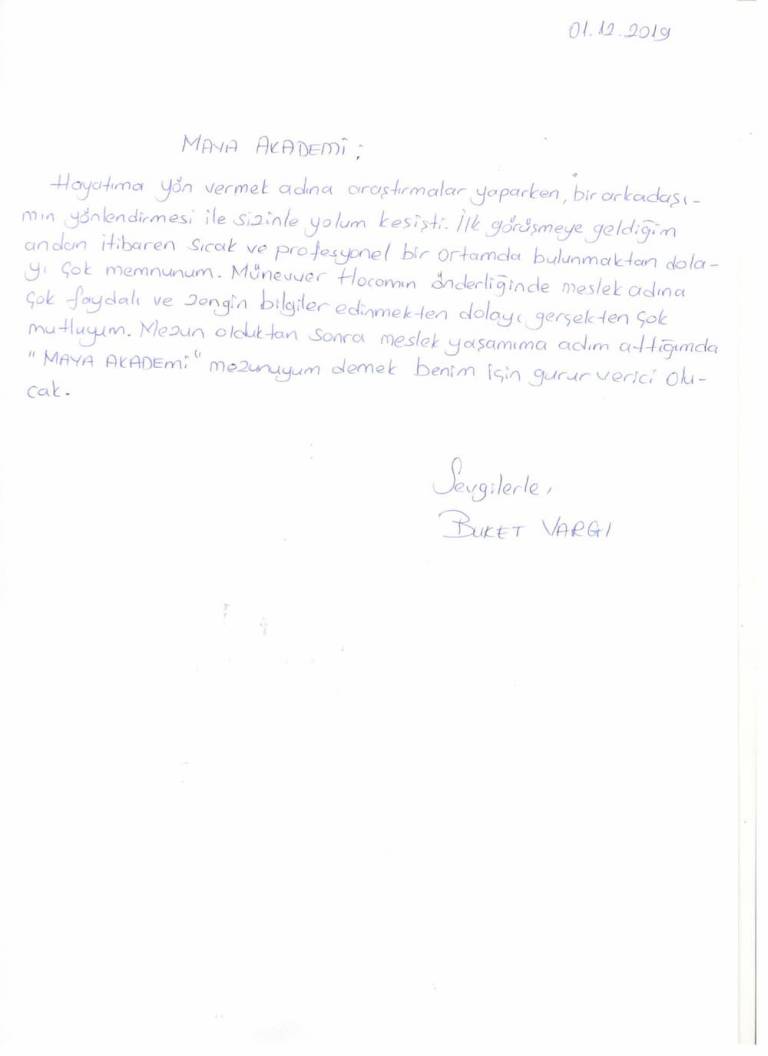 01.12.2019
MAYA AKADEMİ;
Hayatıma yön vermek adına araştırmalar yaparken, bir arkadaşı-
mın yönlendirmesi ile sizinle yolum kesişti. İlk görüşmeye geldiğim
andan itibaren sıcak ve profesyonel bir ortamda bulunmaktan dola-
yı çok memnunum. Münevver Hocamın önderliğinde meslek adına
çok faydalı ve zengin bilgiler edinmekten dolayı gerçekten çok
mutluyum. Mezun olduktan sonra meslek yaşamıma adım attığımda
"MAYA AKADEMİ" mezunuyum demek benim için gurur verici olu-
cak.
Sevgilerle,
BUKET VARGI